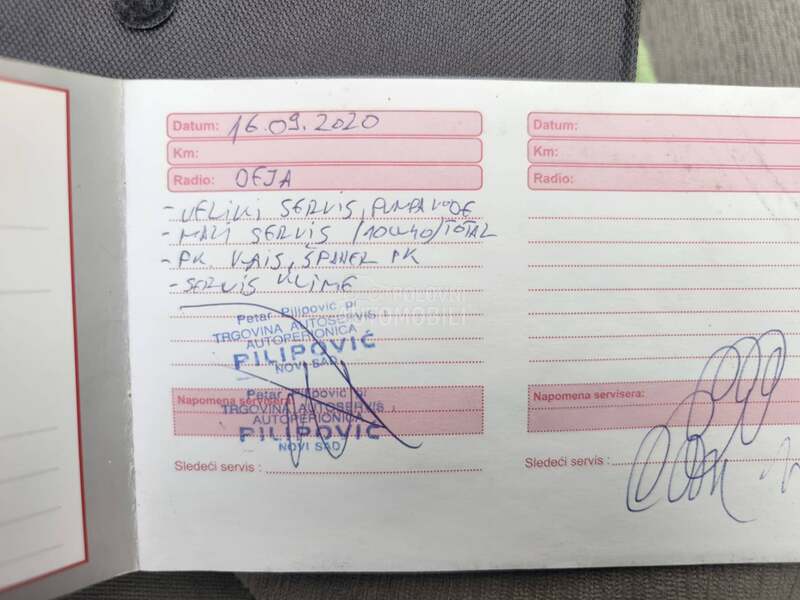 Datum: 16.09.2020
Km:
Radio: DEJA
- VELIKI SERVIS, PUMPA VODE
- MALI SERVIS /10W40/TOTAL
- PK KAIS, ŠPANER PK
- SERVIS KLIME
POLOVNI
AUTOMOBILI
Petar Pilipović pr
TRGOVINA AUTOSERVIS
AUTOPERIONICA
PILIPOVIĆ
NOVI SAD
Napomena servisera:
Petar Pilipović pr
TRGOVINA AUTOSERVIS
AUTOPERIONICA
PILIPOVIĆ
NOVI SAD
Sledeći servis :
Datum:
Km:
Radio:
Napomena servisera:
Sledeći servis :